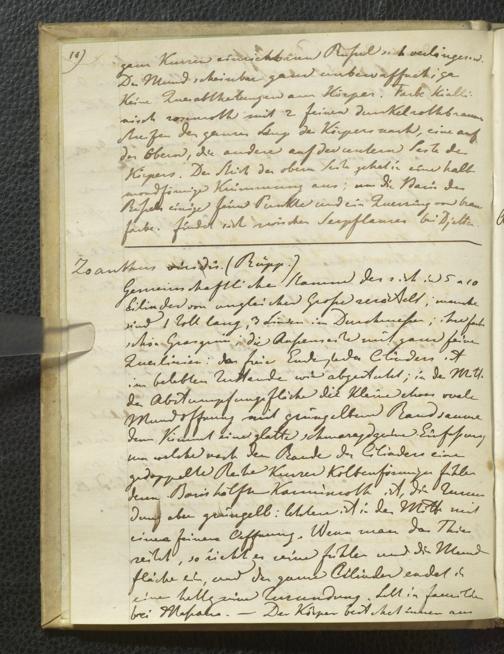 16)
ganz kurzen einziehbaren Rüssel sich verlängernd.
Der Mund scheinbar ganz
Keine Querabtheilungen am Körper. Farbe
rosenroth mit 2 feinen dunkelrothbraunen
Streifen der ganzen Läng des Körpers nach, eine auf
der Obern, die andere auf der untern Seite des
Körpers. Der Strich der obern Seite geht in eine halb
mondförmige Krümmung aus; um die Basis des
Rüssels einige feine Punkte und ein Querring von
farbe. findet sich zwischen Seepflanzen bei Djetta.
Zoanthus viridis. (Rüpp.)
Gemeinschaftliche Stamm der sich in 5 a 10
Cilinder von ungleicher Grösse zerästelt; manche
sind 1 Zoll lang, 3 Linien im Durchmesser; ihre farbe
schön Grasgrün; die Aussenseite mit ganz feinen
Querlinien: das freie Ende jedes Cilinders ist
im belebten Zustande wie abgestutzt; in der Mitte
der Abstumpfungsfläche die kleine etwas ovale
Mundöffnung mit grüngelbem Randsaume
dann kömmt eine glatte schmaragdgrüne Einfassung,
um welche nach dem Rande des Cilinders eine
gedoppelte Reihe kurzer kolbenförmiger fühler
deren Basishälfte Karminroth ist, die
oben grüngelb: letztere ist in der Mitte mit
einer feinen Oeffnung. Wenn man das Thier
reitzt, so zieht es seine fühler und die Mund
fläche ein, und der ganze Cilinder endet in
eine Zurundung. Lebt in familien
bei — Der Körper besteht innen aus